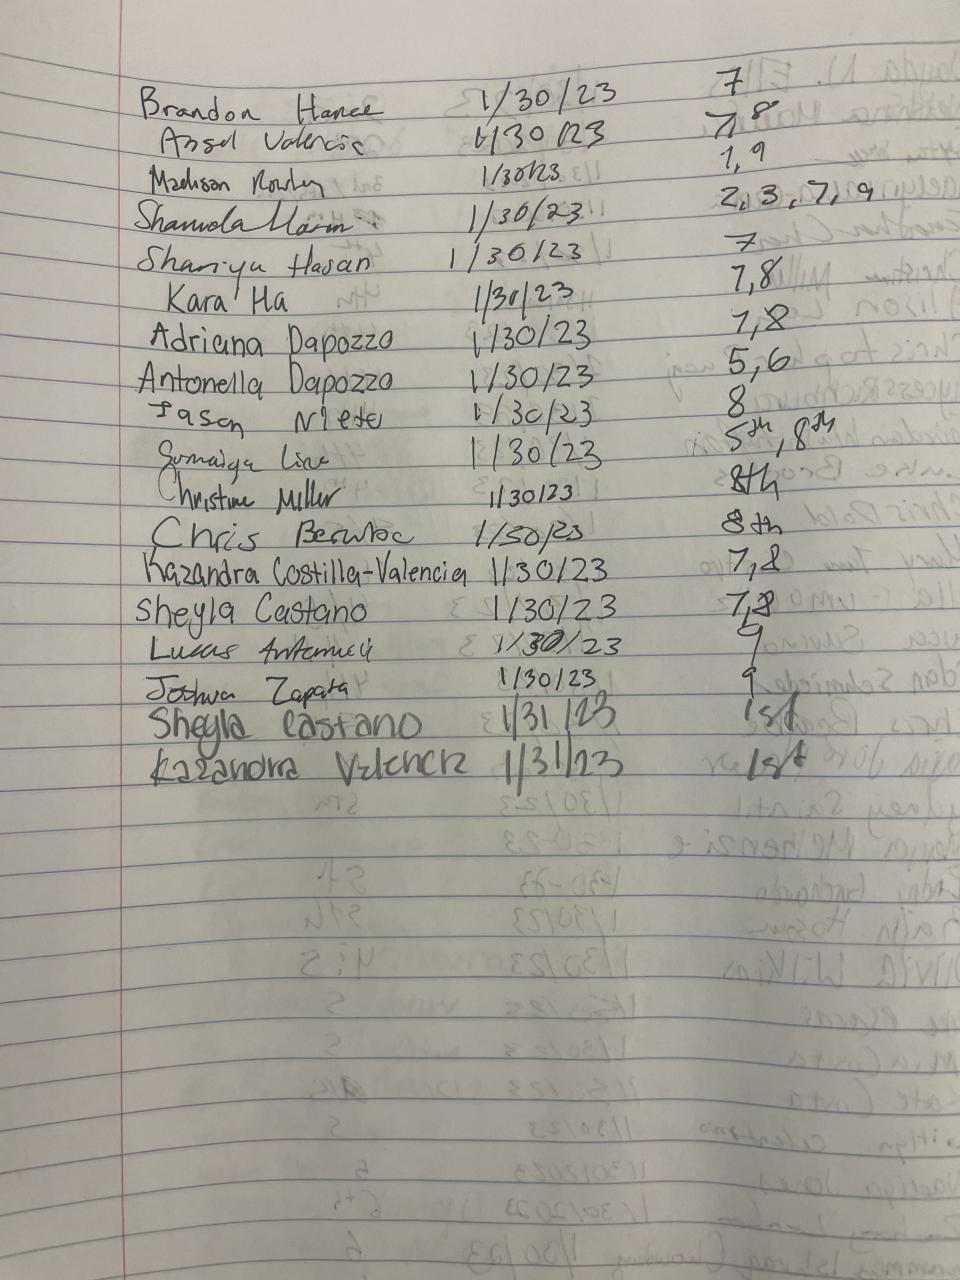 Brandon Hance 1/30/23 7
Angel Valencia 1/30/23 7,8
Madison Rowley 1/30/23 1,9
1/30/23 2,3,7,9
Shaniya Hasan 1/30/23 7
Kara Ha 1/30/23 7,8
Adriana Dapozzo 1/30/23 7,8
Antonella Dapozzo 1/30/23 5,6
Jason Nieto 1/30/23 8
Sumaiya 1/30/23 5th, 8th
Christine Miller 1/30/23 8th
Chris 1/30/23 8th
Kazandra Costilla-Valencia 1/30/23 7,8
Sheyla Castano 1/30/23 7,8
Lucas 1/30/23 9
Joshua Zapata 1/30/23 9
Sheyla Castano 1/31/23 1st
Kazandra Valencia 1/31/23 1st